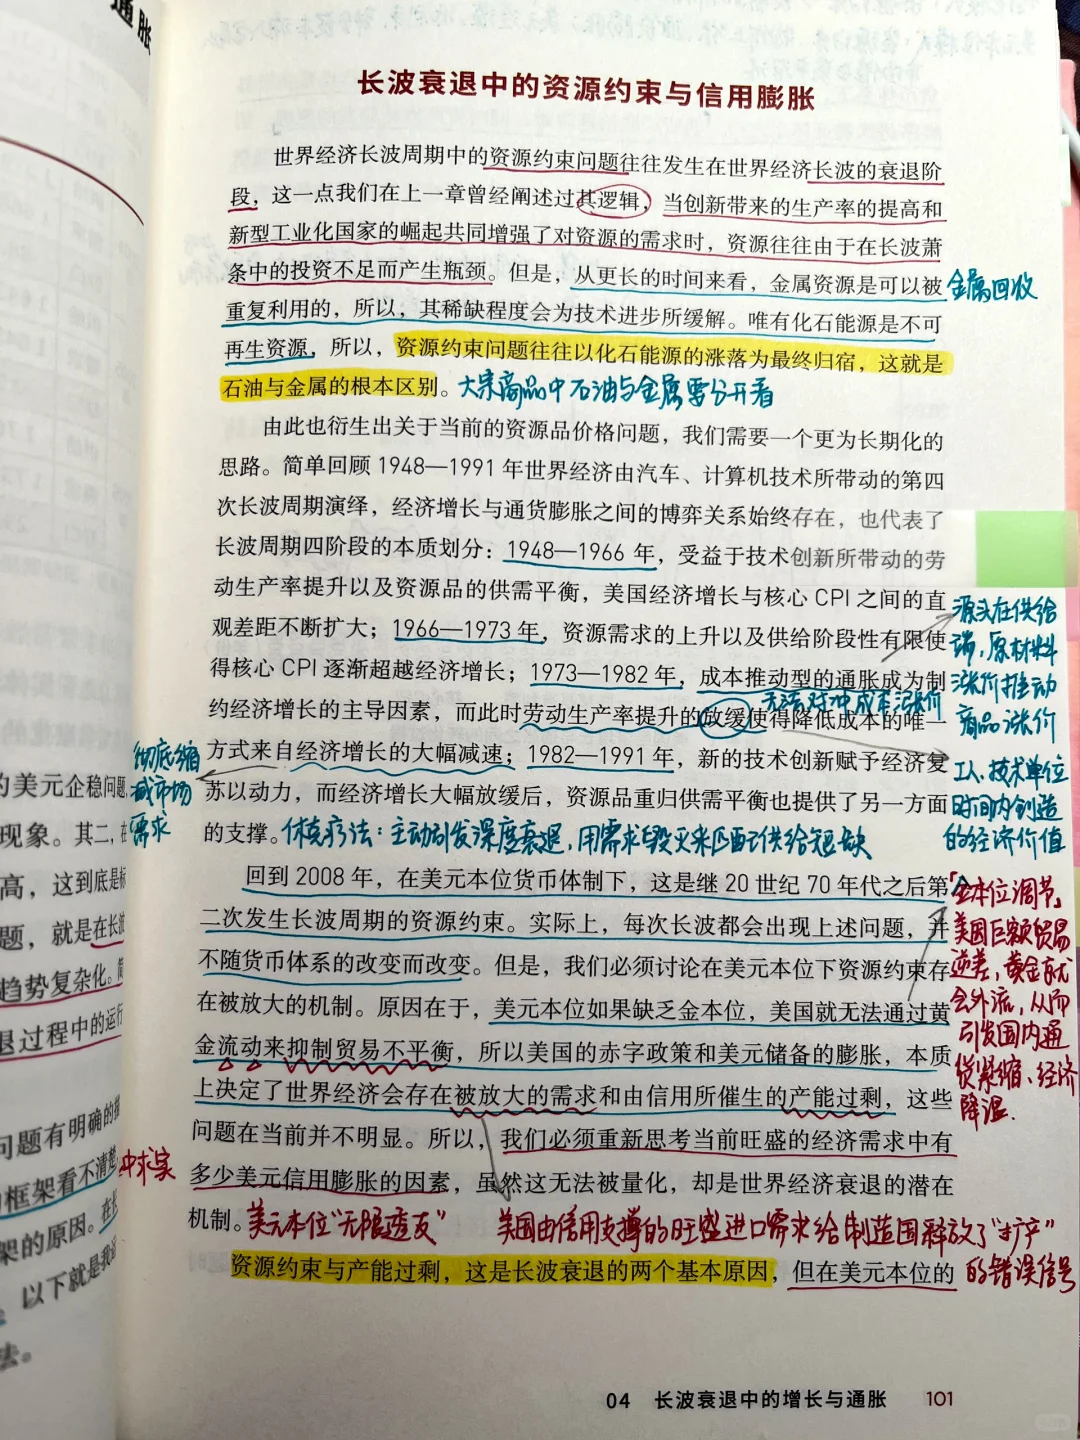 通胀
长波衰退中的资源约束与信用膨胀
世界经济长波周期中的资源约束问题往往发生在世界经济长波的衰退阶
段，这一点我们在上一章曾经阐述过其逻辑，当创新带来的生产率的提高和
新型工业化国家的崛起共同增强了对资源的需求时，资源往往由于在长波萧
条中的投资不足而产生瓶颈。但是，从更长的时间来看，金属资源是可以被
金属回收
重复利用的，所以，其稀缺程度会为技术进步所缓解。唯有化石能源是不可
再生资源，所以，资源约束问题往往以化石能源的涨落为最终归宿，这就是
石油与金属的根本区别。
大宗商品中石油与金属要分开看
由此也衍生出关于当前的资源品价格问题，我们需要一个更为长期化的
思路。简单回顾 1948—1991 年世界经济由汽车、计算机技术所带动的第四
次长波周期演绎，经济增长与通货膨胀之间的博弈关系始终存在，也代表了
长波周期四阶段的本质划分：1948—1966 年，受益于技术创新所带动的劳
动生产率提升以及资源品的供需平衡，美国经济增长与核心 CPI 之间的直
观差距不断扩大；1966—1973 年，资源需求的上升以及供给阶段性有限使
得核心 CPI 逐渐超越经济增长；1973—1982 年，成本推动型的通胀成为制
约经济增长的主导因素，而此时劳动生产率提升的放缓使得降低成本的唯一
方式来自经济增长的大幅减速；1982—1991 年，新的技术创新赋予经济复
苏以动力，而经济增长大幅放缓后，资源品重归供需平衡也提供了另一方面
的支撑。
源头在供给
端，原材料
涨价推动
商品涨价
无法对冲成本涨价
工人、技术单位
时间内创造
的经济价值
彻底缩
减市场
需求
休克疗法：主动引发深度衰退，用需求毁灭来匹配供给短缺
回到 2008 年，在美元本位货币体制下，这是继 20 世纪 70 年代之后第
二次发生长波周期的资源约束。实际上，每次长波都会出现上述问题，并
不随货币体系的改变而改变。但是，我们必须讨论在美元本位下资源约束存
在被放大的机制。原因在于，美元本位如果缺乏金本位，美国就无法通过黄
金流动来抑制贸易不平衡，所以美国的赤字政策和美元储备的膨胀，本质
上决定了世界经济会存在被放大的需求和由信用所催生的产能过剩，这些
问题在当前并不明显。所以，我们必须重新思考当前旺盛的经济需求中有
多少美元信用膨胀的因素，虽然这无法被量化，却是世界经济衰退的潜在
机制。
"金本位调节"
美国巨额贸易
逆差，黄金就
会外流，从而
引发国内通
货紧缩、经济
降温.
美元本位"无限透支"
美国由信用支撑的旺盛进口需求给制造国释放了"扩产"
的错误信号
资源约束与产能过剩，这是长波衰退的两个基本原因，但在美元本位的
04 长波衰退中的增长与通胀 101
的美元企稳问题，
现象。其二，在
高，这到底是标
题，就是在长波
趋势复杂化。简
退过程中的运行
问题有明确的指
框架看不清楚，
架的原因。在长
以下就是我
法。